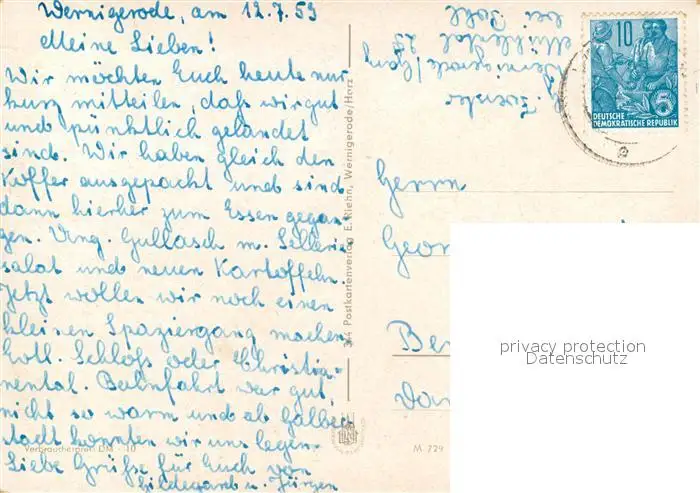 Wernigerode, am 12.7.59
Meine Lieben!
Wir möchten Euch heute nur
kurz mitteilen, daß wir gut
und pünktlich gelandet
sind. Wir haben gleich den
Koffer ausgepackt und sind
dann hierher zum Essen gegan-
gen. Ung. Gullasch m. Sellerie-
salat und neuen Kartoffeln.
Jetzt wollen wir noch einen
kleinen Spaziergang machen
Evtl. Schloß oder Christia-
nental. Bahnfahrt war gut,
nicht so warm und ab Halber-
stadt konnten wir uns legen.
Liebe Grüße für Euch von
Hildegard u. Jürgen
Verbraucherpreis DM -.10
3/4 Postkartenverlag E. Riehn, Wernigerode/Harz
Wernigerode/Harz
Mühlental 25
bei Pohl
10
5
DEUTSCHE
DEMOKRATISCHE REPUBLIK
Herrn
Geor
Be
M 729
privacy protection
Datenschutz